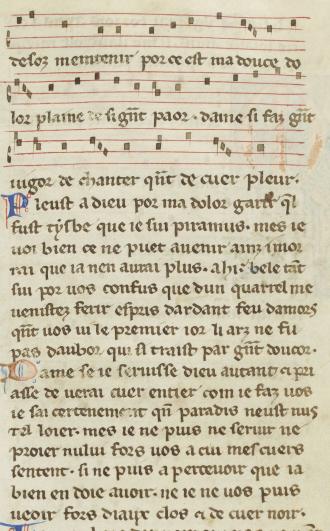 desoz meintenir por ce est ma douce do
lor plaine de si gñt paor. dame si faz gñt
iugor de chanter qñt de cuer pleur.
Pleust a dieu por ma dolor garir ql
fust tysbe que ie sui piramus. mes ie
uoi bien ce ne puet auenir ainz i mor
rai que ia nen aurai plus. ahi bele tãt
sui por uos confus que dun quarrel me
uenistez ferir espris dardant feu damors
qñt uos ui le premier ior li arz ne fu
pas daubor qui si traist par gñt doucor.
Dame se ie seruisse dieu autant & pri
asse de uerai cuer entier com ie faz uos
ie sai certenement qñ paradis neust nus
tel loier. mes ie ne puis ne seruir ne
proier nului fors uos a cui mes cuers
sentent. si ne puis aperceuoir que ia
bien en doie auoir. ne ie ne uos puis
ueoir fors diaux clos & de cuer noir.